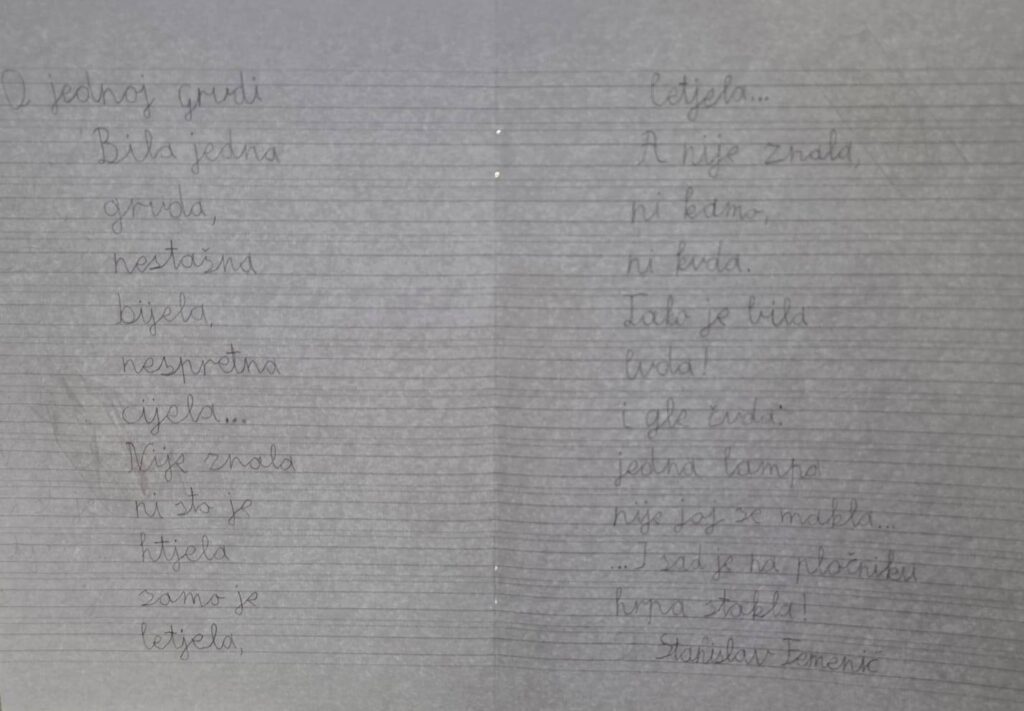 O jednoj grudi
Bila jedna
gruda,
nestašna
bijela,
nespretna
cijela...
Nije znala
ni sto je
htjela
samo je
letjela,
letjela...
A nije znala,
ni kamo,
ni kuda.
Tako je bila
luda!
i gle čuda:
jedna lampa
nije joj se makla...
...I sad je na pločniku
hrpa stakla!
Stanislav Femenić